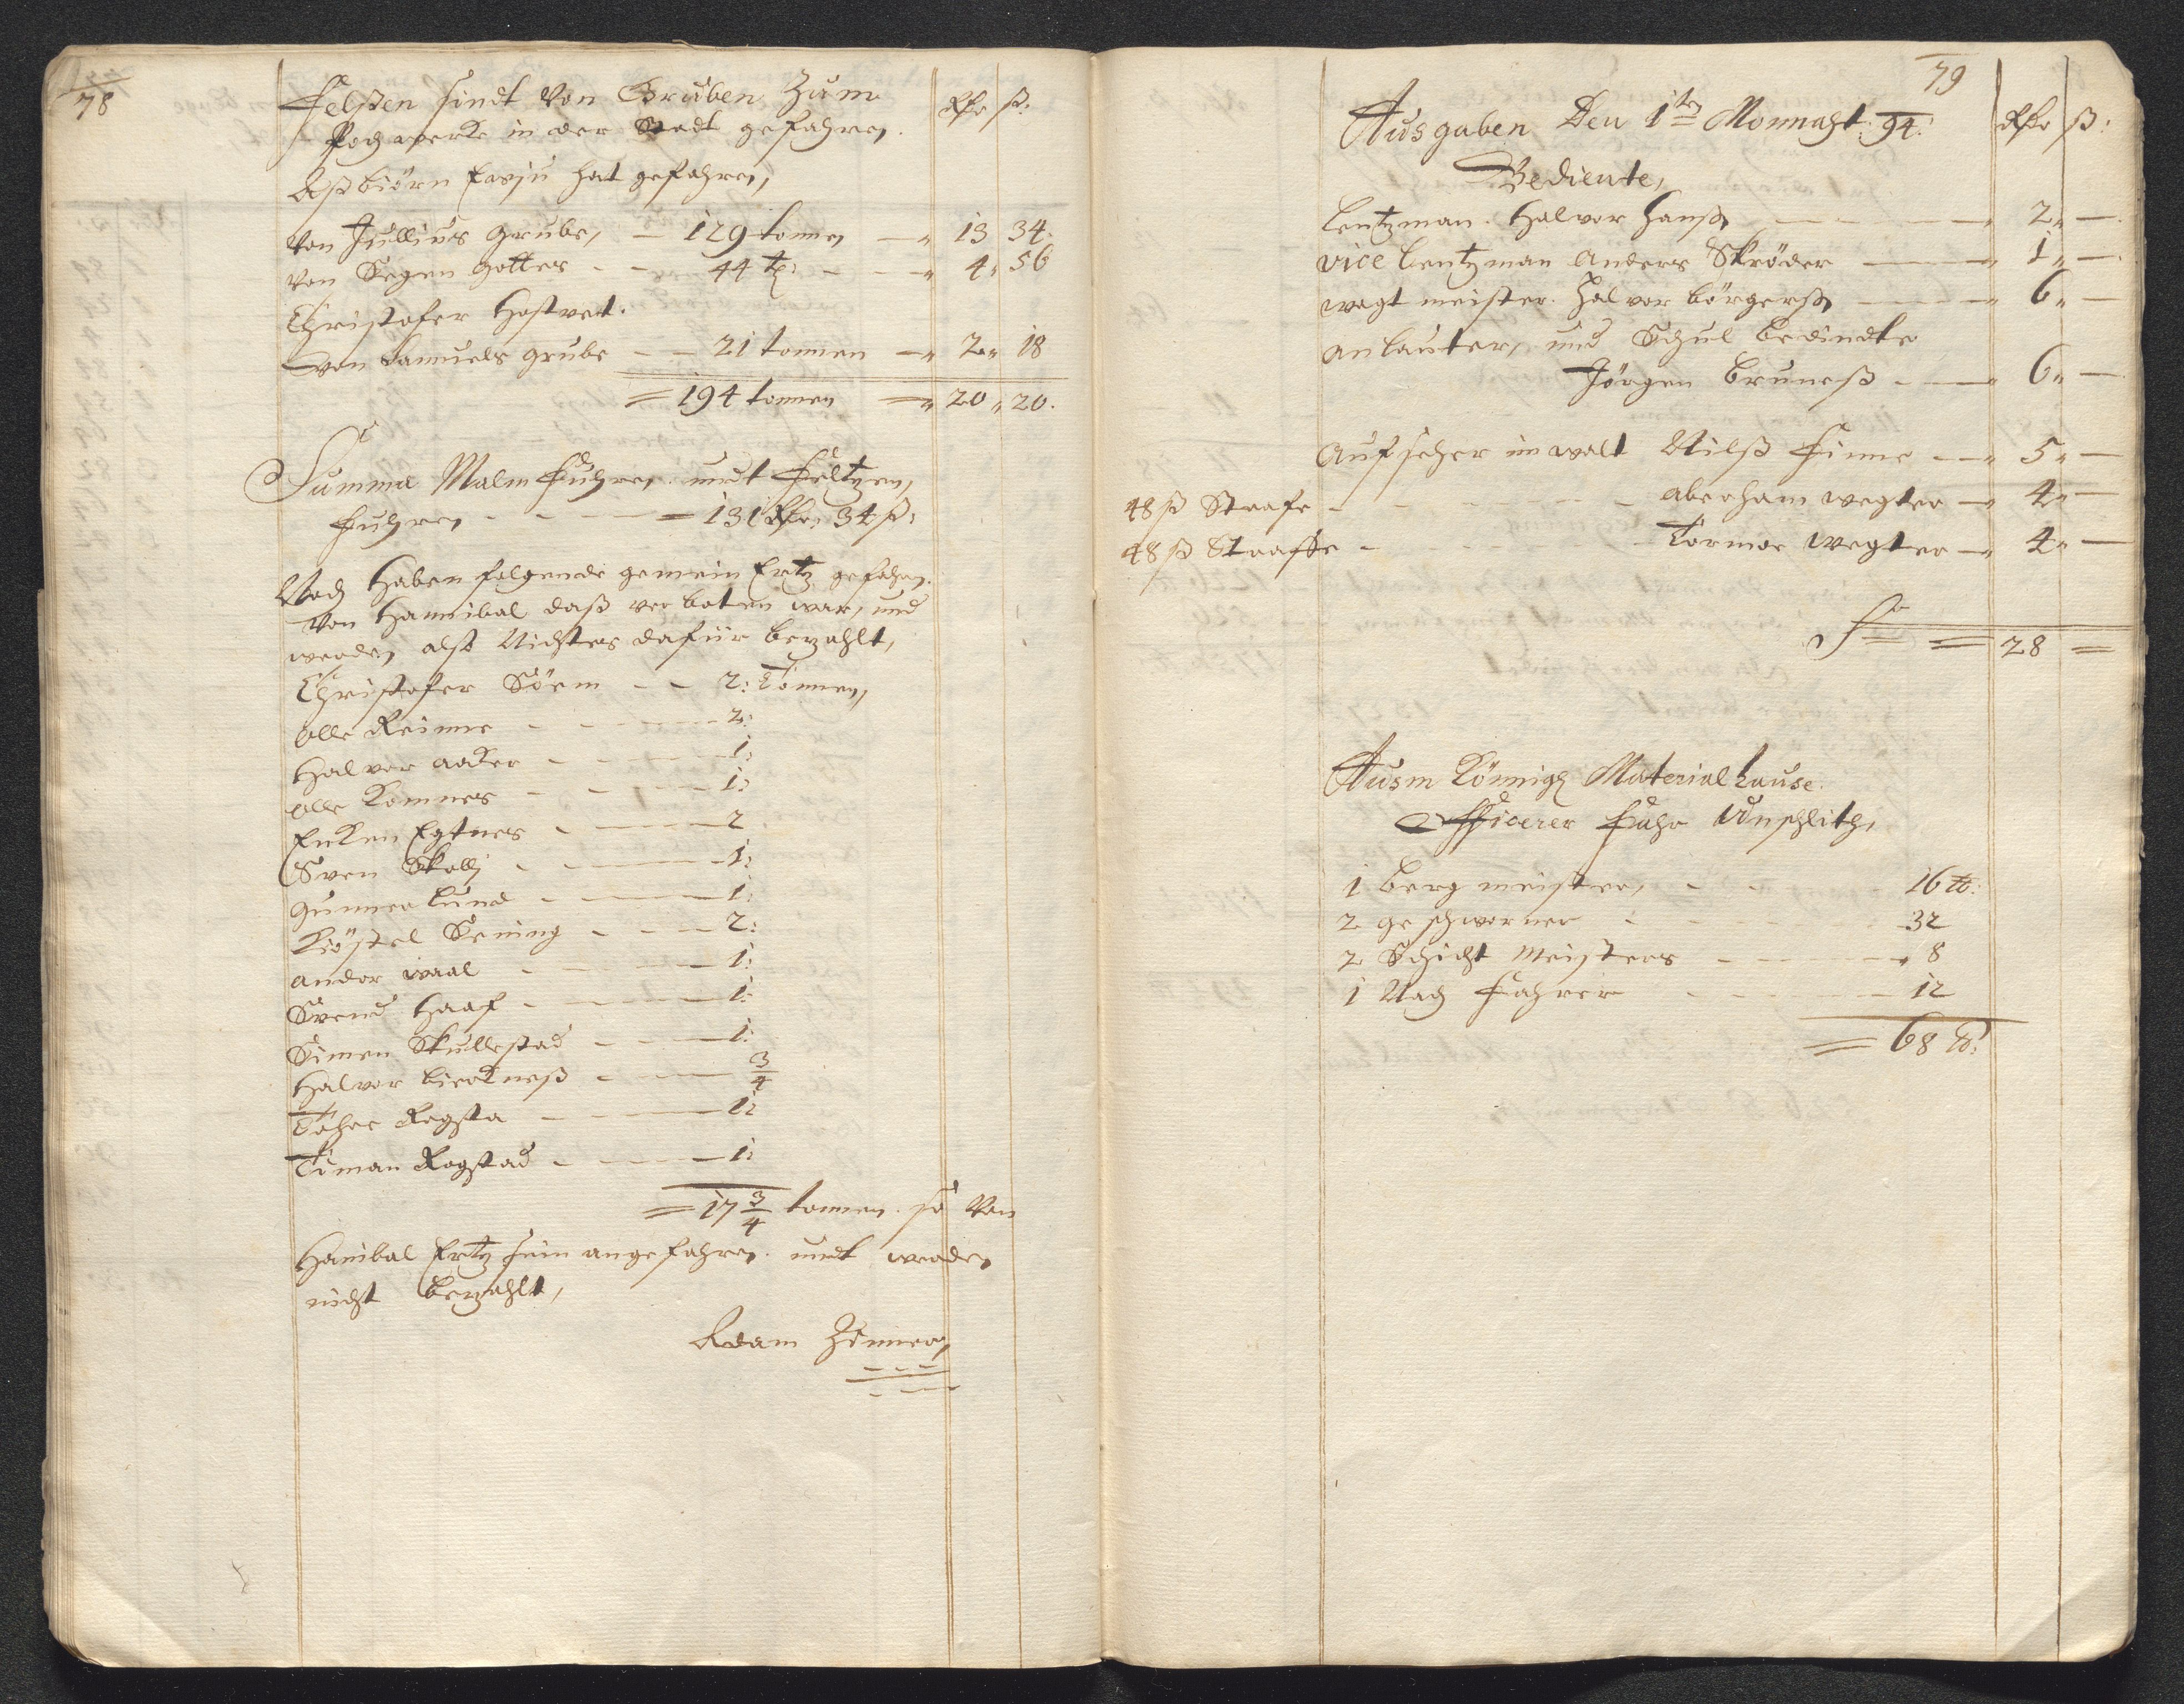 78
Felßen sindt Von Gruben Zum
Poch wercke in der Stadt gefahren.
Rdr ß:
Aßbiörn hat gefahren,
Von Jullius Grube, — 129 tonnen — 13 34.
Von Segen Gottes - - 44 t: - - — 4 " 56
Christofer Hostvet.
Von Samuels Grube - - 21 tonnen — 2 " 18
= 194 tonnen = 20 " 20.
Summa Malm Fuhren undt Feltzen,
Fuhren - - - = 131 Rdr: 34 ß:
Noch Haben folgende gemein Ertz gefahren.
Von Hannibal daß verboten war, und
werden alß Nichtes dafür bezahlt,
Christofer Sörm - - 2: Tonnen,
Olle Reime - - 2:
Halvor Aaker - - 1:
Olle Komnes - - 1:
Egtnes - - 2
Sven Skollj - - 1:
Gunner Lund - - 1:
Kiöstel Sening - - 2:
Ander Waal - - 1:
Svend Haaf - - 1:
Simen Skullestad - - 1:
Halvor Lierkneß - - 3/4
Rogsta - - 1:
Timan Rogstad - - 1:
= 17 3/4 tonnen. so Von
Hanibal Ertz sein angefahren. undt werden
nicht bezahlt,
Adam Zinner,
79
Ausgaben Den 1ten Monnaht: 94:
Rdr ß:
Bediente,
Lentzman. Halvor Hanß — 2 " —
Vice Lentzman Anders Skröder — 1 " —
Wagt meister. Halvor Börgerß — 6 " —
Anlauter, und Schul Bedindte
Jörgen Bruneß - — 6 " —
Aufseher im walt Nilß Finne — 5 " —
48 ß Strafe - - - Aberham Wegter — 4 " —
48 ß Straffe - - - Tormoe Wegter — 4 " —
S = 28 =
Ausm Königl Material hause.
Officirer Fahr Unschlith,
1 Berg meister, - - 16 lb:
2 Geschworner - - 32
2 Schicht Meisters - - 8
1 Nach Fahrer - - 12
= 68 lb: